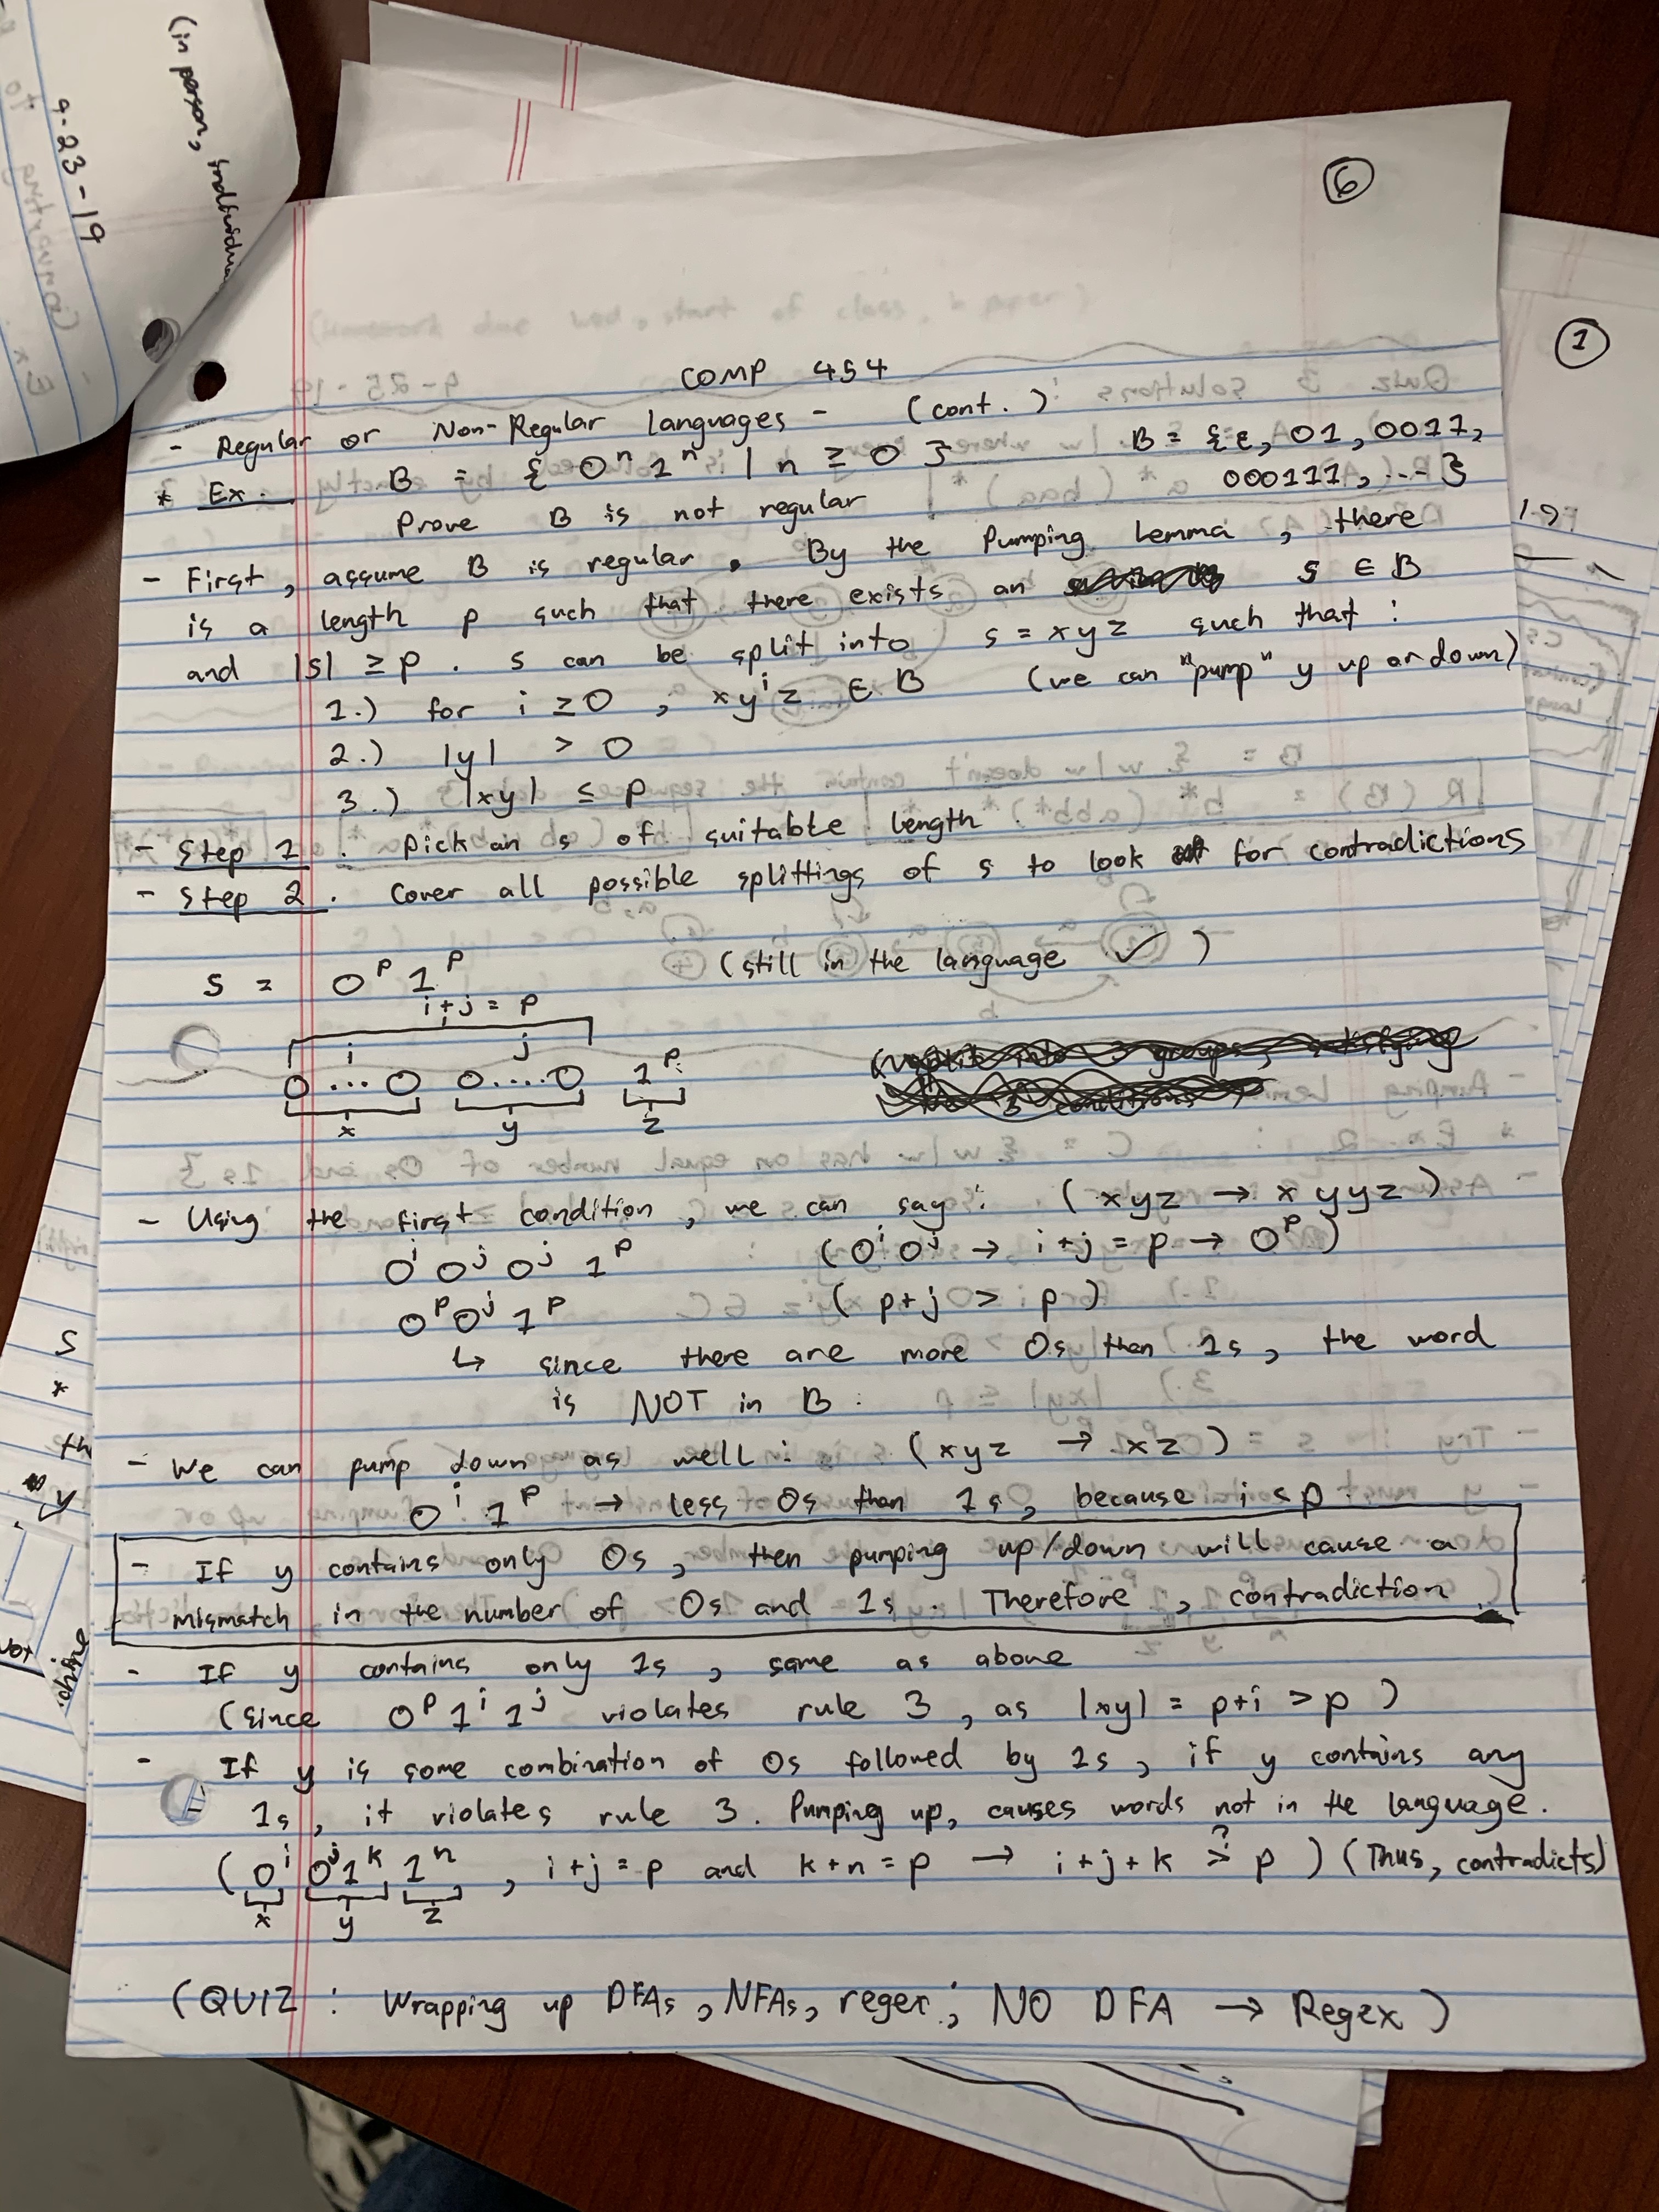 (in person, individua
9-23-19
6
1
COMP 454
- Regular or Non-Regular Languages - (cont.)
* Ex. B = { 0ⁿ 1ⁿ | n ≥ 0 } B = { ε, 01, 0011,
000111, ... }
Prove B is not regular
- First, assume B is regular. By the Pumping Lemma, there
is a length p such that there exists an s ∈ B
and |s| ≥ p. s can be split into s = xyz such that:
1.) for i ≥ 0, xyⁱz ∈ B (we can "pump" y up or down)
2.) |y| > 0
3.) |xy| ≤ p
- Step 1. Pick an s of suitable length.
- Step 2. Cover all possible splittings of s to look for contradictions
s = 0ᵖ 1ᵖ (still in the language ✓)
i+j = p
i j
0...0 0....0 1ᵖ
x y z
- Using the first condition, we can say: (xyz → xyyz)
0ⁱ 0ʲ 0ʲ 1ᵖ (0ⁱ0ʲ → i+j = p → 0ᵖ)
0ᵖ0ʲ 1ᵖ (p+j > p)
↳ since there are more 0s than 1s, the word
is NOT in B.
- We can pump down as well: (xyz → xz)
0ⁱ 1ᵖ → less 0s than 1s, because i ≤ p.
- If y contains only 0s, then pumping up/down will cause a
mismatch in the number of 0s and 1s. Therefore, contradiction.
- If y contains only 1s, same as above
(since 0ᵖ 1ⁱ 1ʲ violates rule 3, as |xy| = p+i > p)
- If y is some combination of 0s followed by 1s, if y contains any
1s, it violates rule 3. Pumping up, causes words not in the language.
(0ⁱ 0ʲ1ᵏ 1ⁿ, i+j = p and k+n = p → i+j+k >? p) (Thus, contradicts)
x y z
(QUIZ: Wrapping up DFAs, NFAs, regex; NO DFA → Regex)